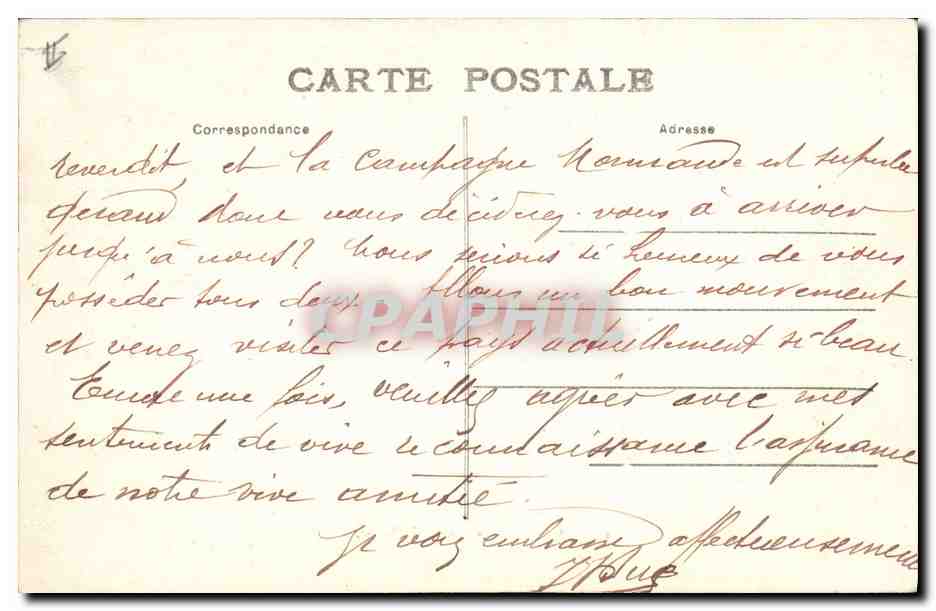 CARTE POSTALE
Correspondance
Adresse
reverdit, et la campagne Normande est superbe
quand donc vous déciderez-vous à arriver
jusqu'à nous? Nous serions si heureux de vous
posséder tous deux. Allons un bon mouvement
et venez visiter ce pays actuellement si beau.
Encore une fois, veuillez agréer avec mes
sentiments de vive reconnaissance l'assurance
de notre vive amitié.
Je vous embrasse affectueusement
CPAPHIL